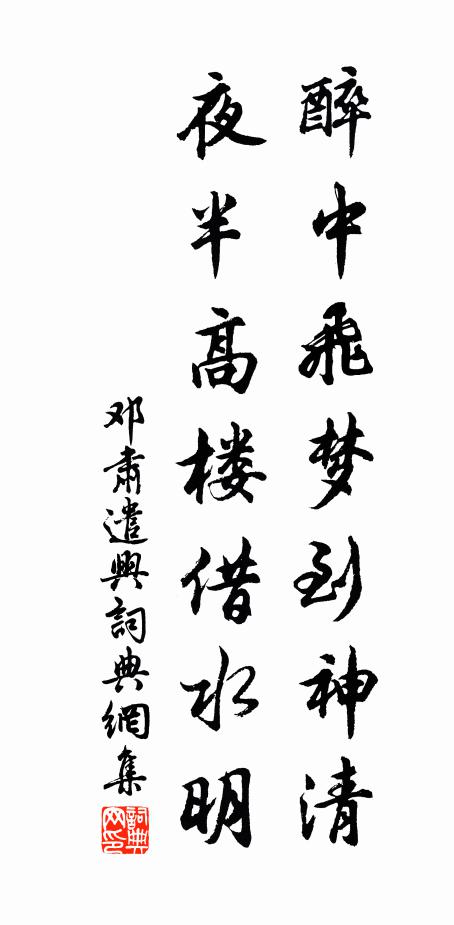 醉中飛梦到神清
夜半高楼借水明
邓肃遣興詞典網集
詞典网印